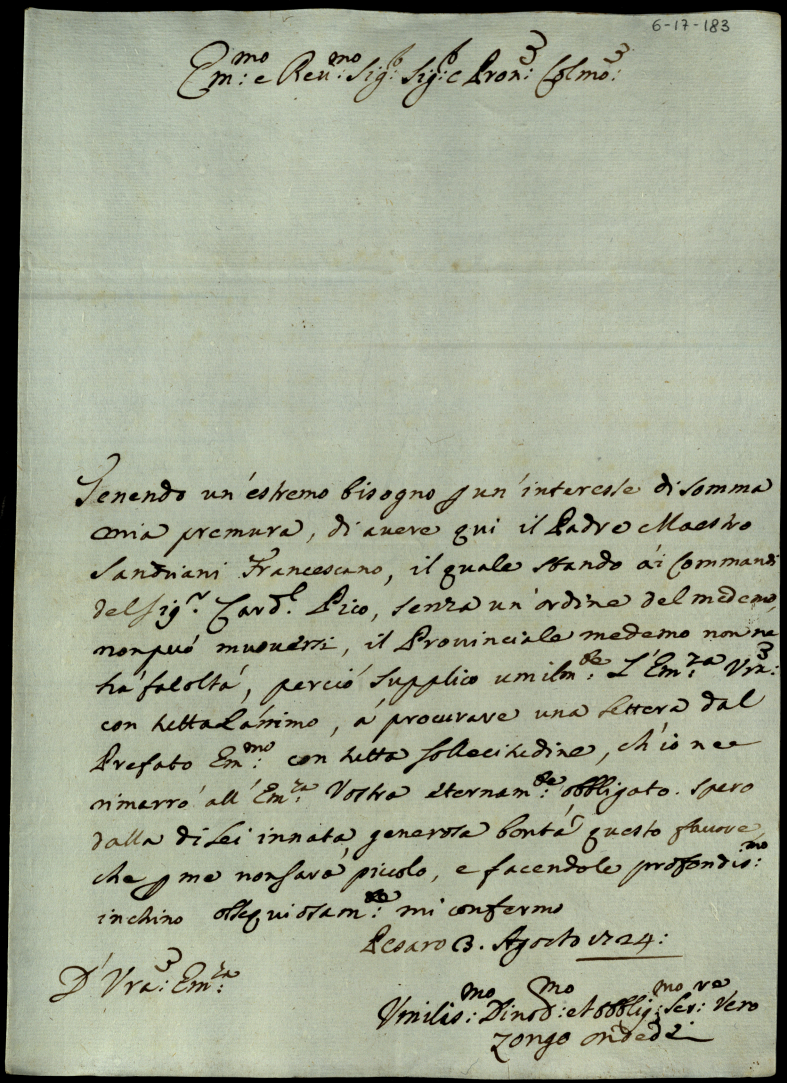 6-17-183
Em:mo e Reu:mo Sig:r Sig:r e Pron:e Colmo:
Tenendo un'estremo bisogno p un'interesse di somma
mia premura, di auere qui il Padre Maestro
Francescano, il quale stando ái Commandi
del Sig:r Card:l Pico, senza un'ordine del medemo,
non può muouersi, il Prouinciale medemo non ne
há facoltá, perció supplico umilm:te L'Em:za Vra:
con tutta L'ánimo, á procurare una lettera dal
Prefato Em:mo con tutta sollecitudine, ch'io ne
rimarró all'Em:za Vostra eternam:te obbligato. spero
dalla di Lei innata, generosa bontá questo fauore,
che p me non sará piccolo, e facendole profondis:mo
inchino ossequiosam:te mi confermo
Pesaro 3. Agosto 1724:
D' Vra: Em:za
Vmilis:mo Diuo:mo et obblig:mo Ser:re Vero
Zongo ondedei